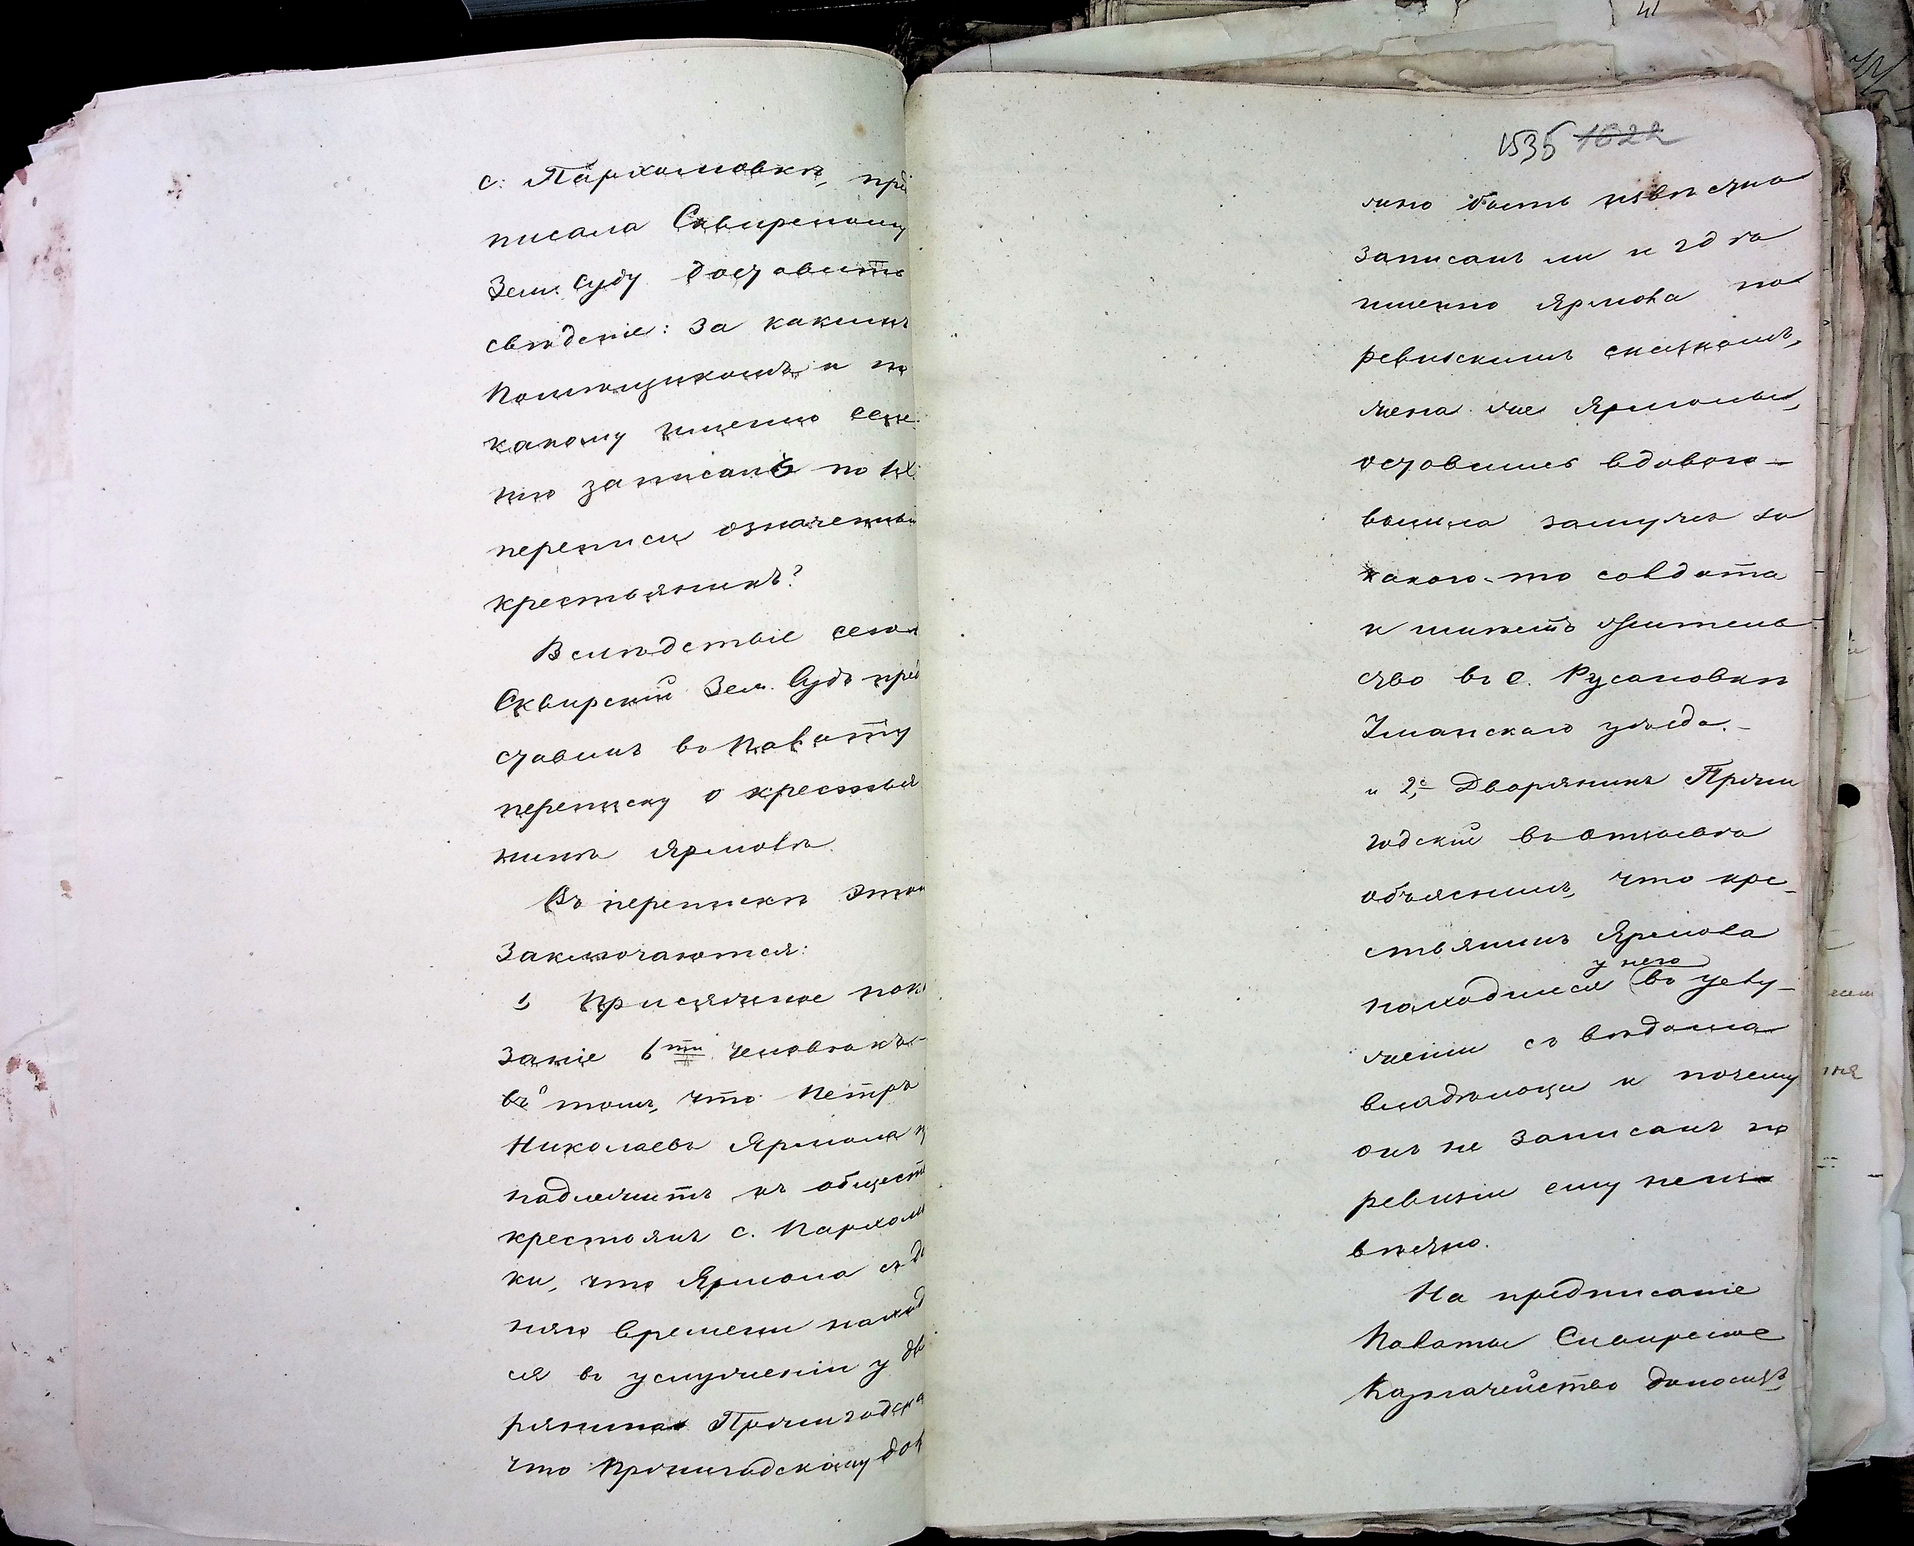 с: Пархомовкѣ, пред
писала Сквирскому
Зем. Суду доставить
свѣденіе: за какимъ
Помѣщикомъ и по
какому имѣнію селе-
нію записанъ по IX
переписи означенный
крестьянинъ?
Вслѣдствіе сего
Сквирскій Зем. Судъ пред
ставилъ въ Палату
переписку о крестья
нинѣ Ярмолѣ.
Въ перепискѣ этой
Заключаются:
1 Присяжное пока
заніе 6ти человѣкъ
въ томъ, что Петръ
Николаевъ Ярмола
надлежитъ къ обществ
крестьянъ с. Пархомов
ки, что Ярмола съ да
няго времени наход
ся въ услуженіи у дво
рянина Пржигодска
что Пржигодскому дол
1535 1022
жно быть извѣстно
записанъ ли и гдѣ
именно Ярмола по
ревизскимъ сказкамъ,
жена же Ярмолы,
оставшись вдовою
вышла замужъ за
какого-то солдата
и имѣетъ житель
ство въ с. Русаловкѣ
Уманскаго уѣзда.
и 2,е Дворянинъ Пржи
годскій въ отзывѣ
объяснилъ, что кре-
стьянинъ Ярмола
находился у него въ услу-
женіи съ вѣдома
владѣлицы и почему
онъ не записанъ по
ревизіи ему неиз
вѣстно.
На предписаніе
Палаты Сквирское
Казначейство доноситъ